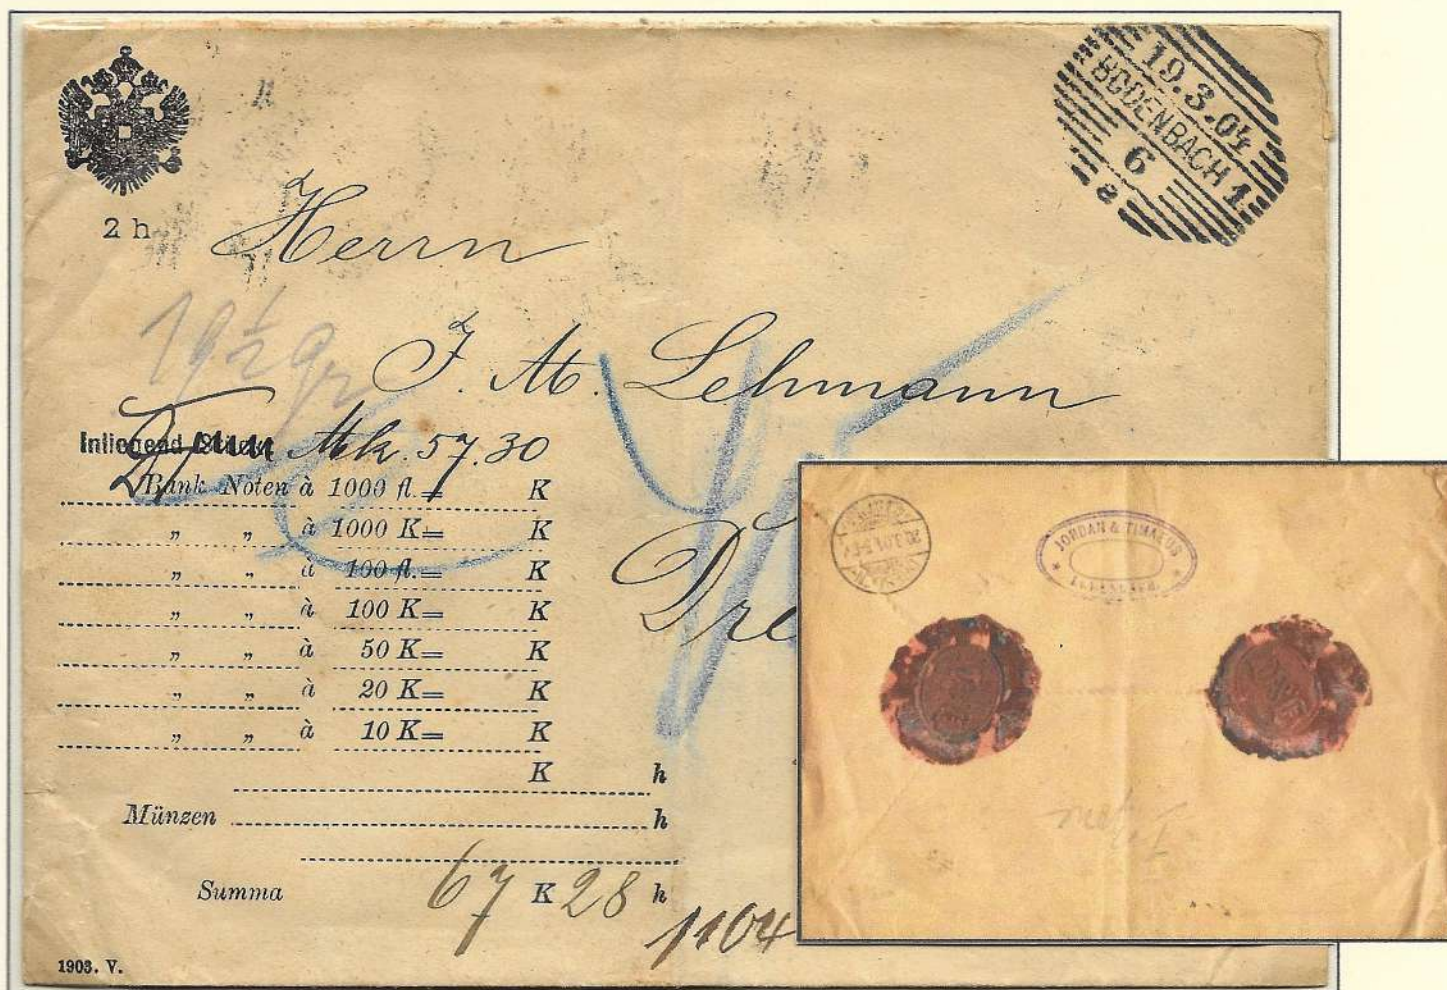 19.3.04
BODENBACH 1
6
a
2 h
Herrn
19 1/2 gr
J. M. Lehmann
Inliegend Mk. 57.30
Bank Noten à 1000 fl.= K
„ „ à 1000 K= K
„ „ à 100 fl.= K
„ „ à 100 K= K
„ „ à 50 K= K
„ „ à 20 K= K
„ „ à 10 K= K
K h
Münzen h
Summa 67 K 28 h
1104
1903. V.
JORDAN & TIMAEUS